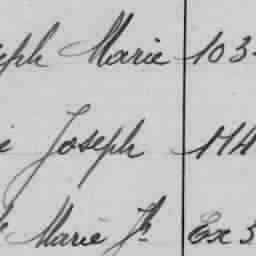 eph Marie 103
e Joseph 1144
Marie Jh Ex 3